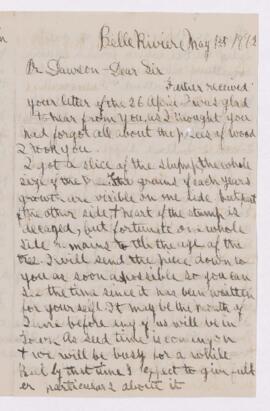 Belle Riviere May 1st
Dr Dawson - Dear Sir
Father received
your letter of the 26 April I was glad
to hear from you, as I thought you
had forgot all about the pieces of wood
I took you.
I got a slice of the stump the whole
size of the tree the grains of each years
growth are visible on one side but part
of the other side & heart of the stump is
decayed, but fortunate one whole
side remains to tell the age of the
tree. I will send the piece down to
you as soon as possible so you can
see the time since it has been written
for your self. It may be the month of
June before any of us will be in
Town As seed time is coming on
& we will be busy for a while
But by that time I expect to give full
er particulars about it